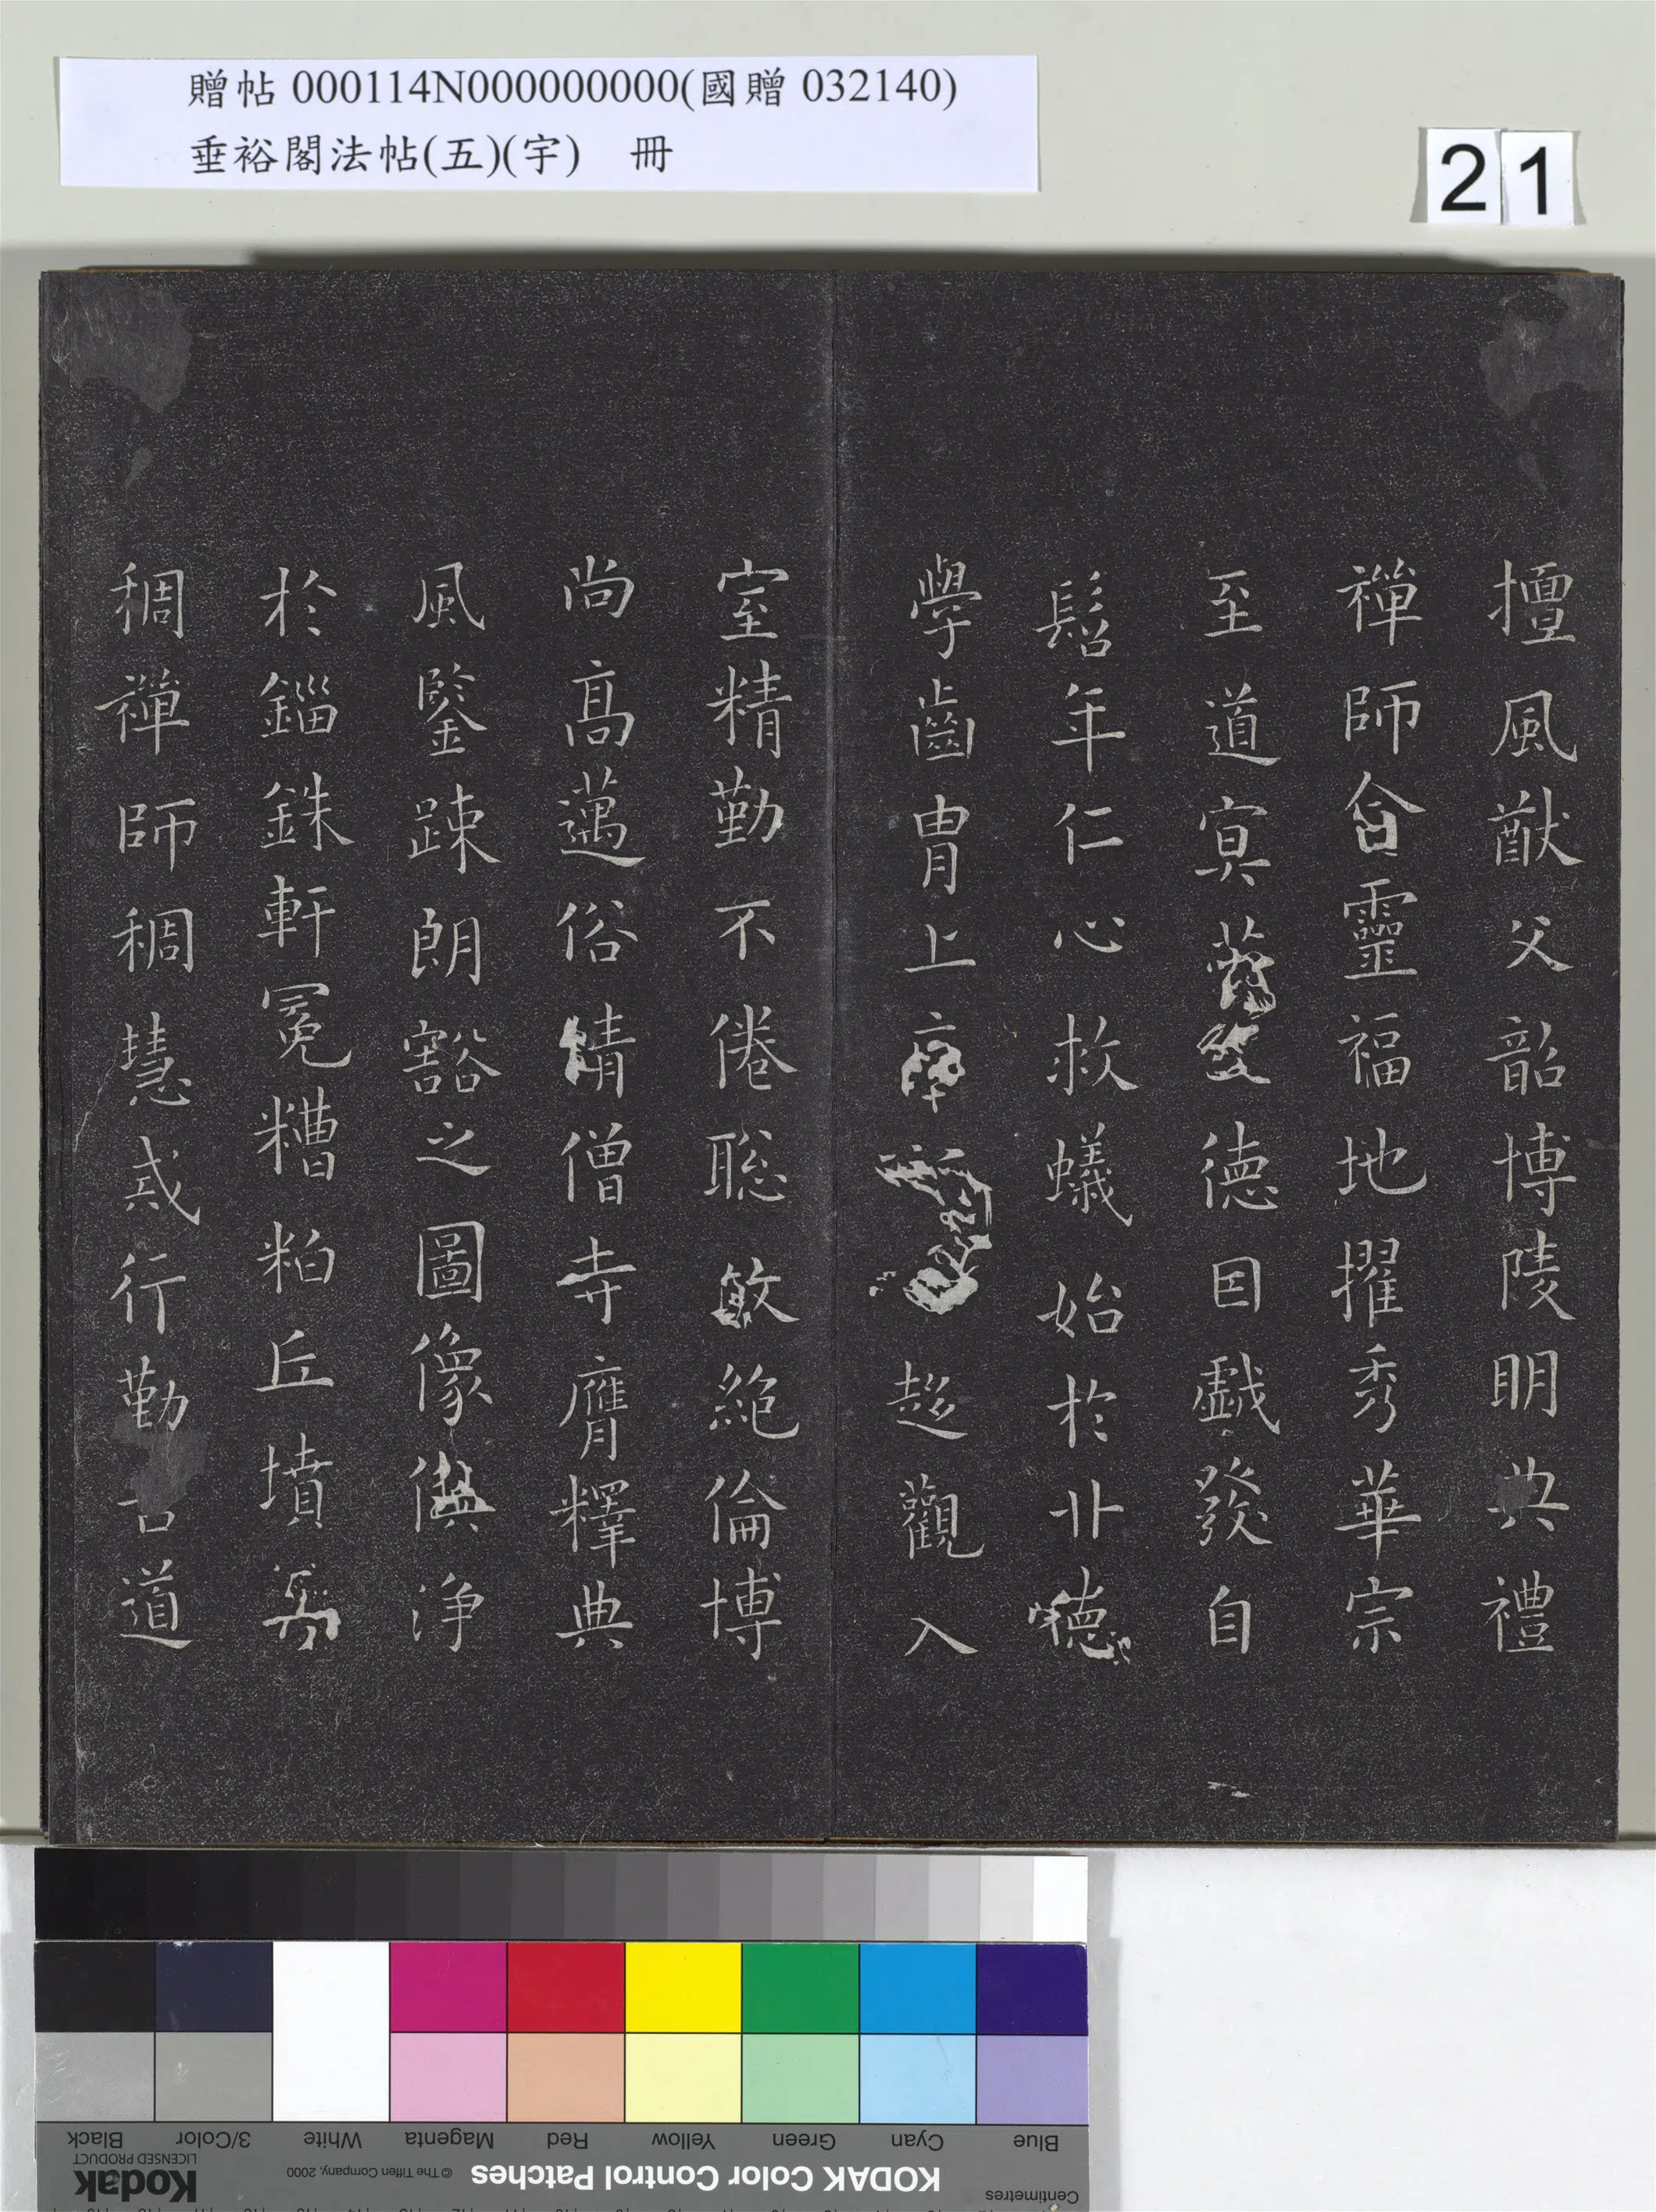 贈帖 000114N000000000(國贈 032140)
垂裕閣法帖(五)(宇) 冊
21
擅風猷父韶博陵明典禮
禪師含靈福地擢秀華宗
至道冥德囙戱發自
髫年仁心救蟻始於卝德
學齒胄上庠趍觀入
室精勤不倦聡敏絶倫博
尚髙邁俗精僧寺膺釋典
風鑒踈朗豁之圖像俱浄
於錙銖軒冕糟粕丘墳
稠禪師稠慧戒行勤苦道
Blue Cyan Green Yellow Red Magenta White 3/Color Black
KODAK Color Control Patches
© The Tiffen Company, 2000
Kodak
LICENSED PRODUCT
Centimetres